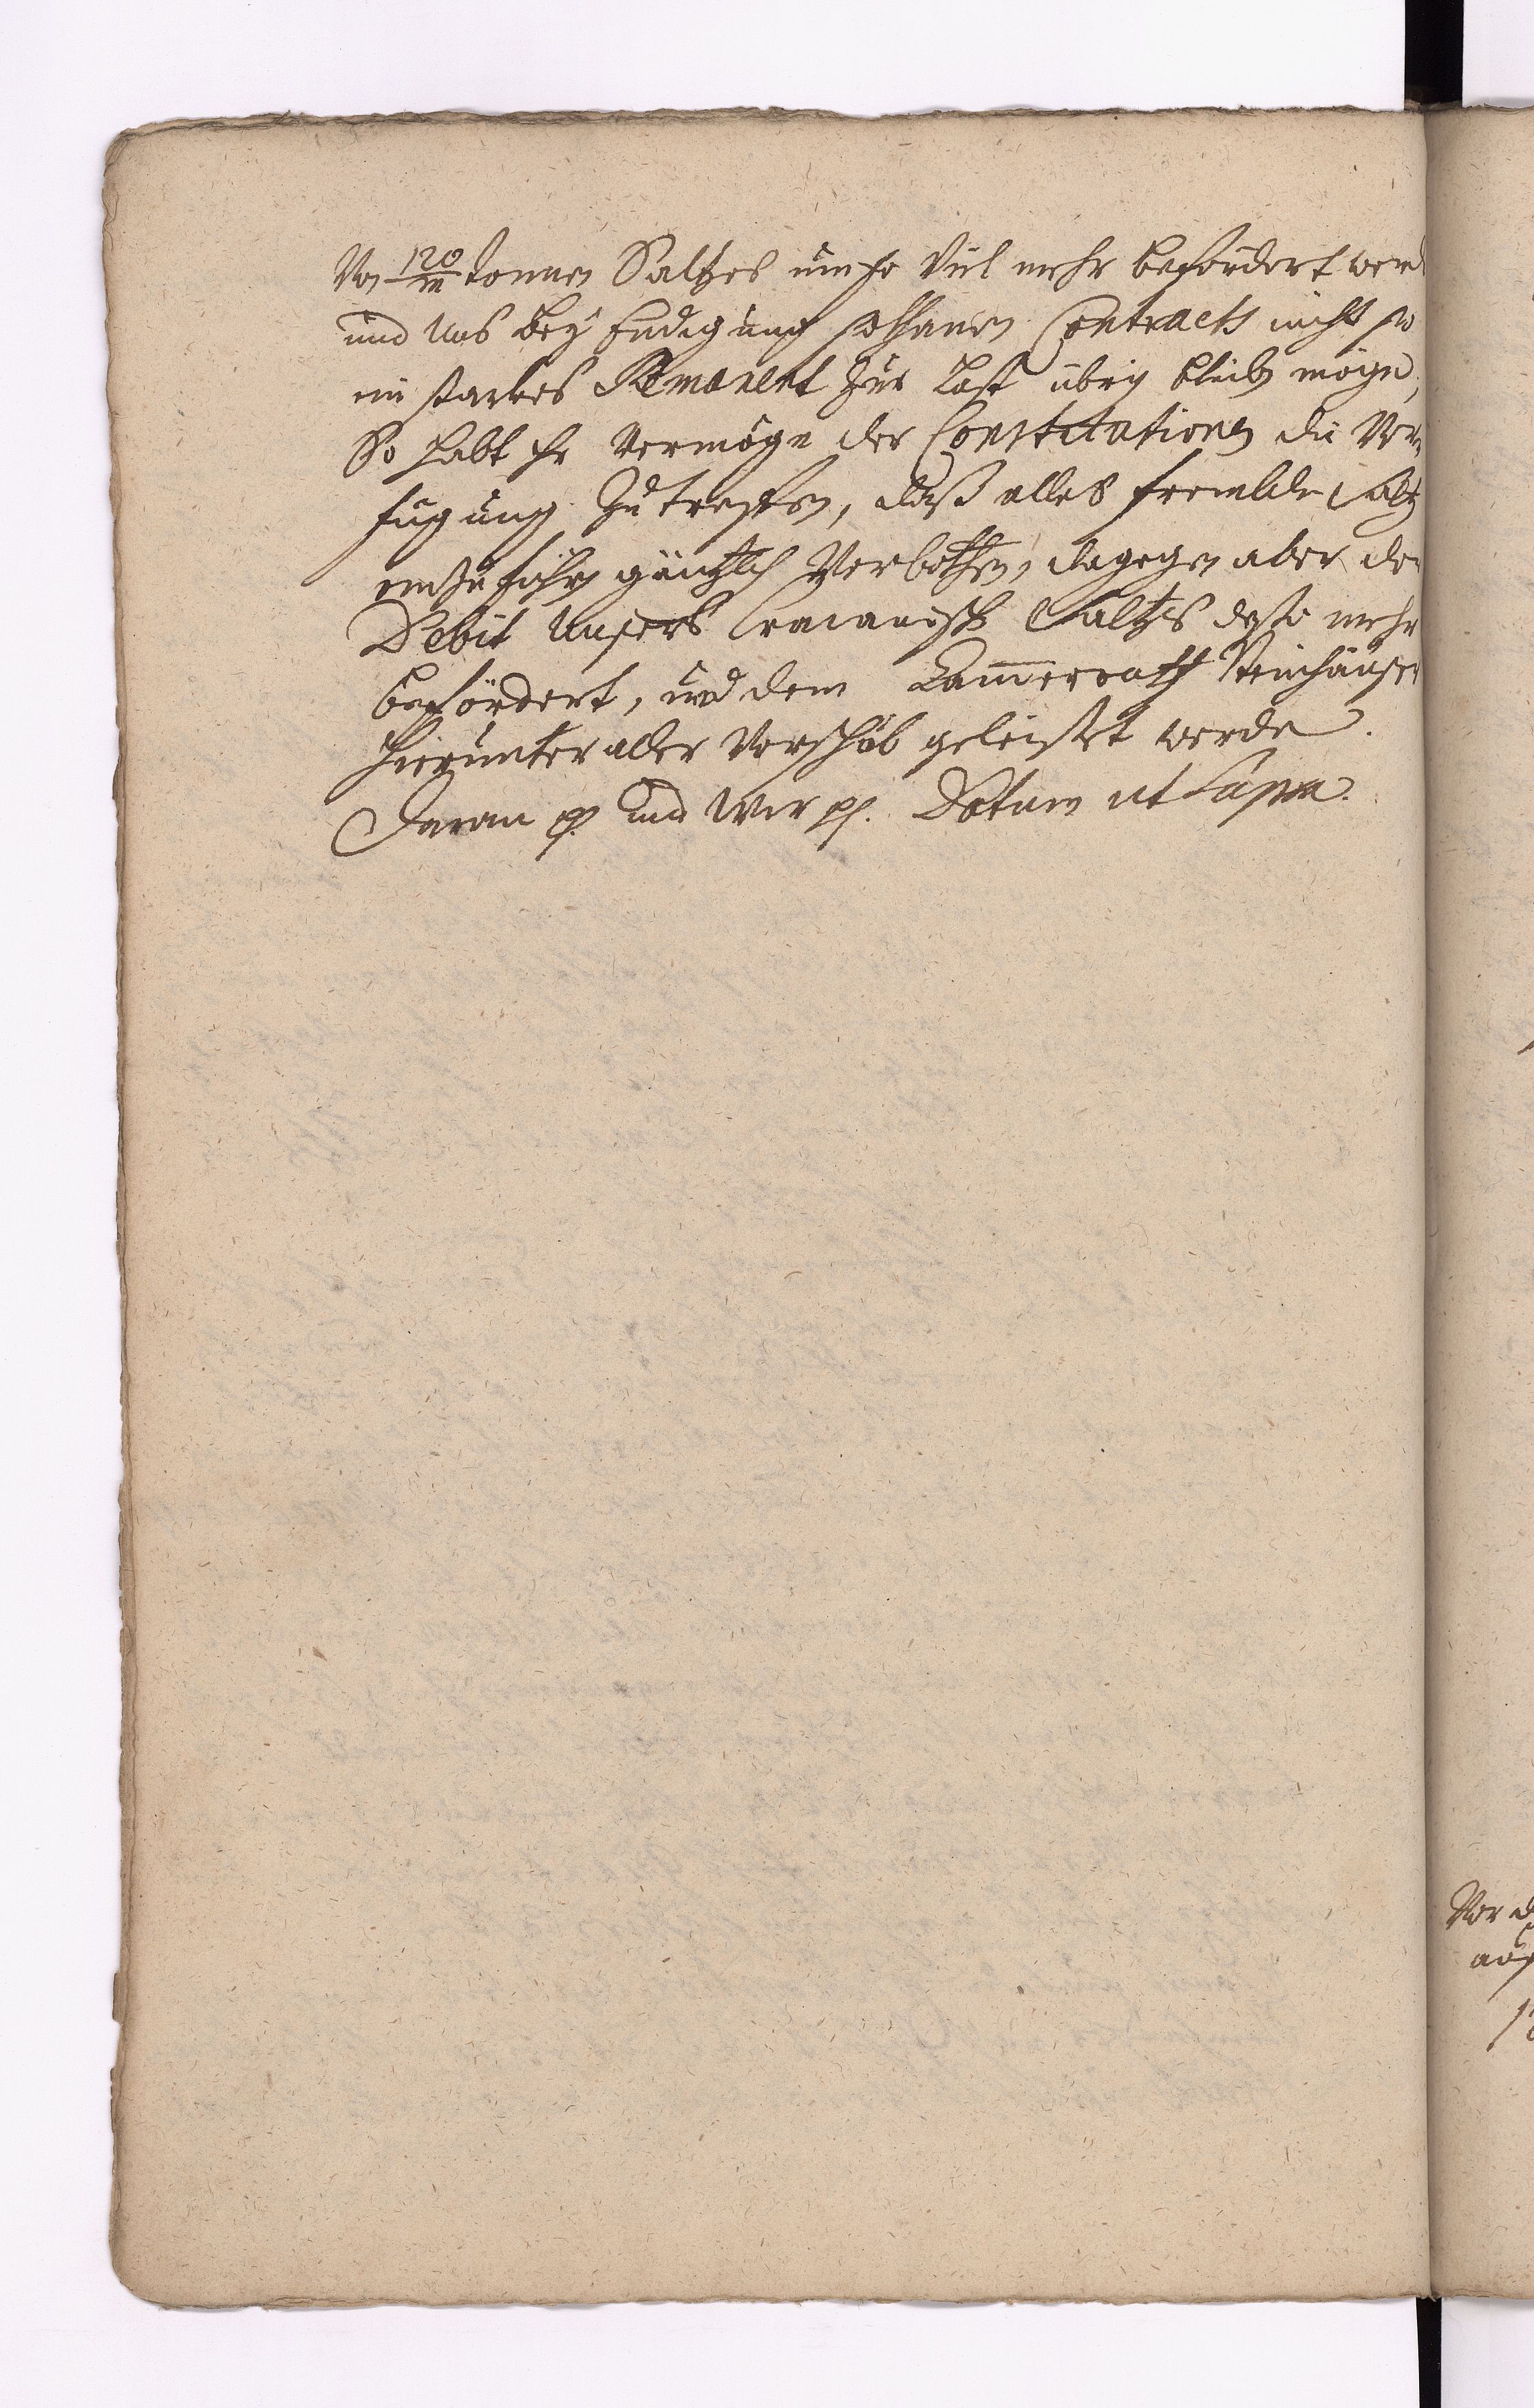 Von 120/m tonnen Saltzes um so viel mehr befördert werd
und Uns bey Endigung sothanen Contracts nicht so
ein starkes Remanent zur Last übrig bleiben möge,
So habt Ihr vermöge der Constitutionen die Ver-
fügung zu treffen, daß alles frembde Saltz
einzuführen gäntzlich verbothen, dagegen aber de
Debit Unsers Cracauischen Saltzes desto mehr
befördert, und dem Cammerrath Steinhäuser
hierunter aller Vorschub geleistet werde.
Daran p. und Wir p. Datum ut supra.
Vor d
auf